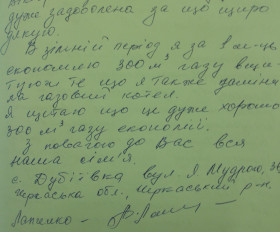 дуже задоволена за що щиро
дякую.
В зимній період я за 1 м-ць
економлю 300 м³ газу
те що я також
на газовий котел.
Я щитаю що це дуже хорошо
300 м³ газу економії.
З повагою до Вас вся
наша сім'я.
с. Дубіївка вул. Я Мудрого, 3
Черкаська обл., Черкаський р-н